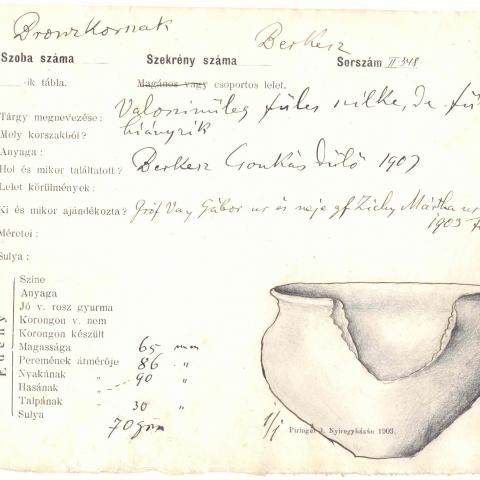 Bronzkornak Berkesz
Szoba száma Szekrény száma Sorszám II 348.
-ik tábla. Magános vagy csoportos lelet.
Tárgy megnevezése: Valoszinüleg füles silke, de fü
Mely korszakból? hianyzik
Anyaga :
Hol és mikor találtatott? Berkesz Csonkás dülö 1907
Lelet körülmények :
Ki és mikor ajándékozta? Gróf Vay Gábor ur és neje gf Zichy Mártha ur
1903
Méretei :
Sulya :
Edény
Szine
Anyaga
Jó v. rosz gyurma
Korongon v. nem
Korongon készült
Magassága 65 mm
Peremének átmérője 86 "
Nyakának "
Hasának " 90 "
Talpának " 30 "
Sulya 70 gm
1/1
Piringer J. Nyiregyházán 1903.